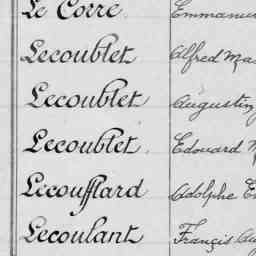 Le Corre. Emmanu
Lecoublet Alfred Ma
Lecoublet Augustin
Lecoublet. Edouard
Lecoufflard Adolphe
Lecoulant François